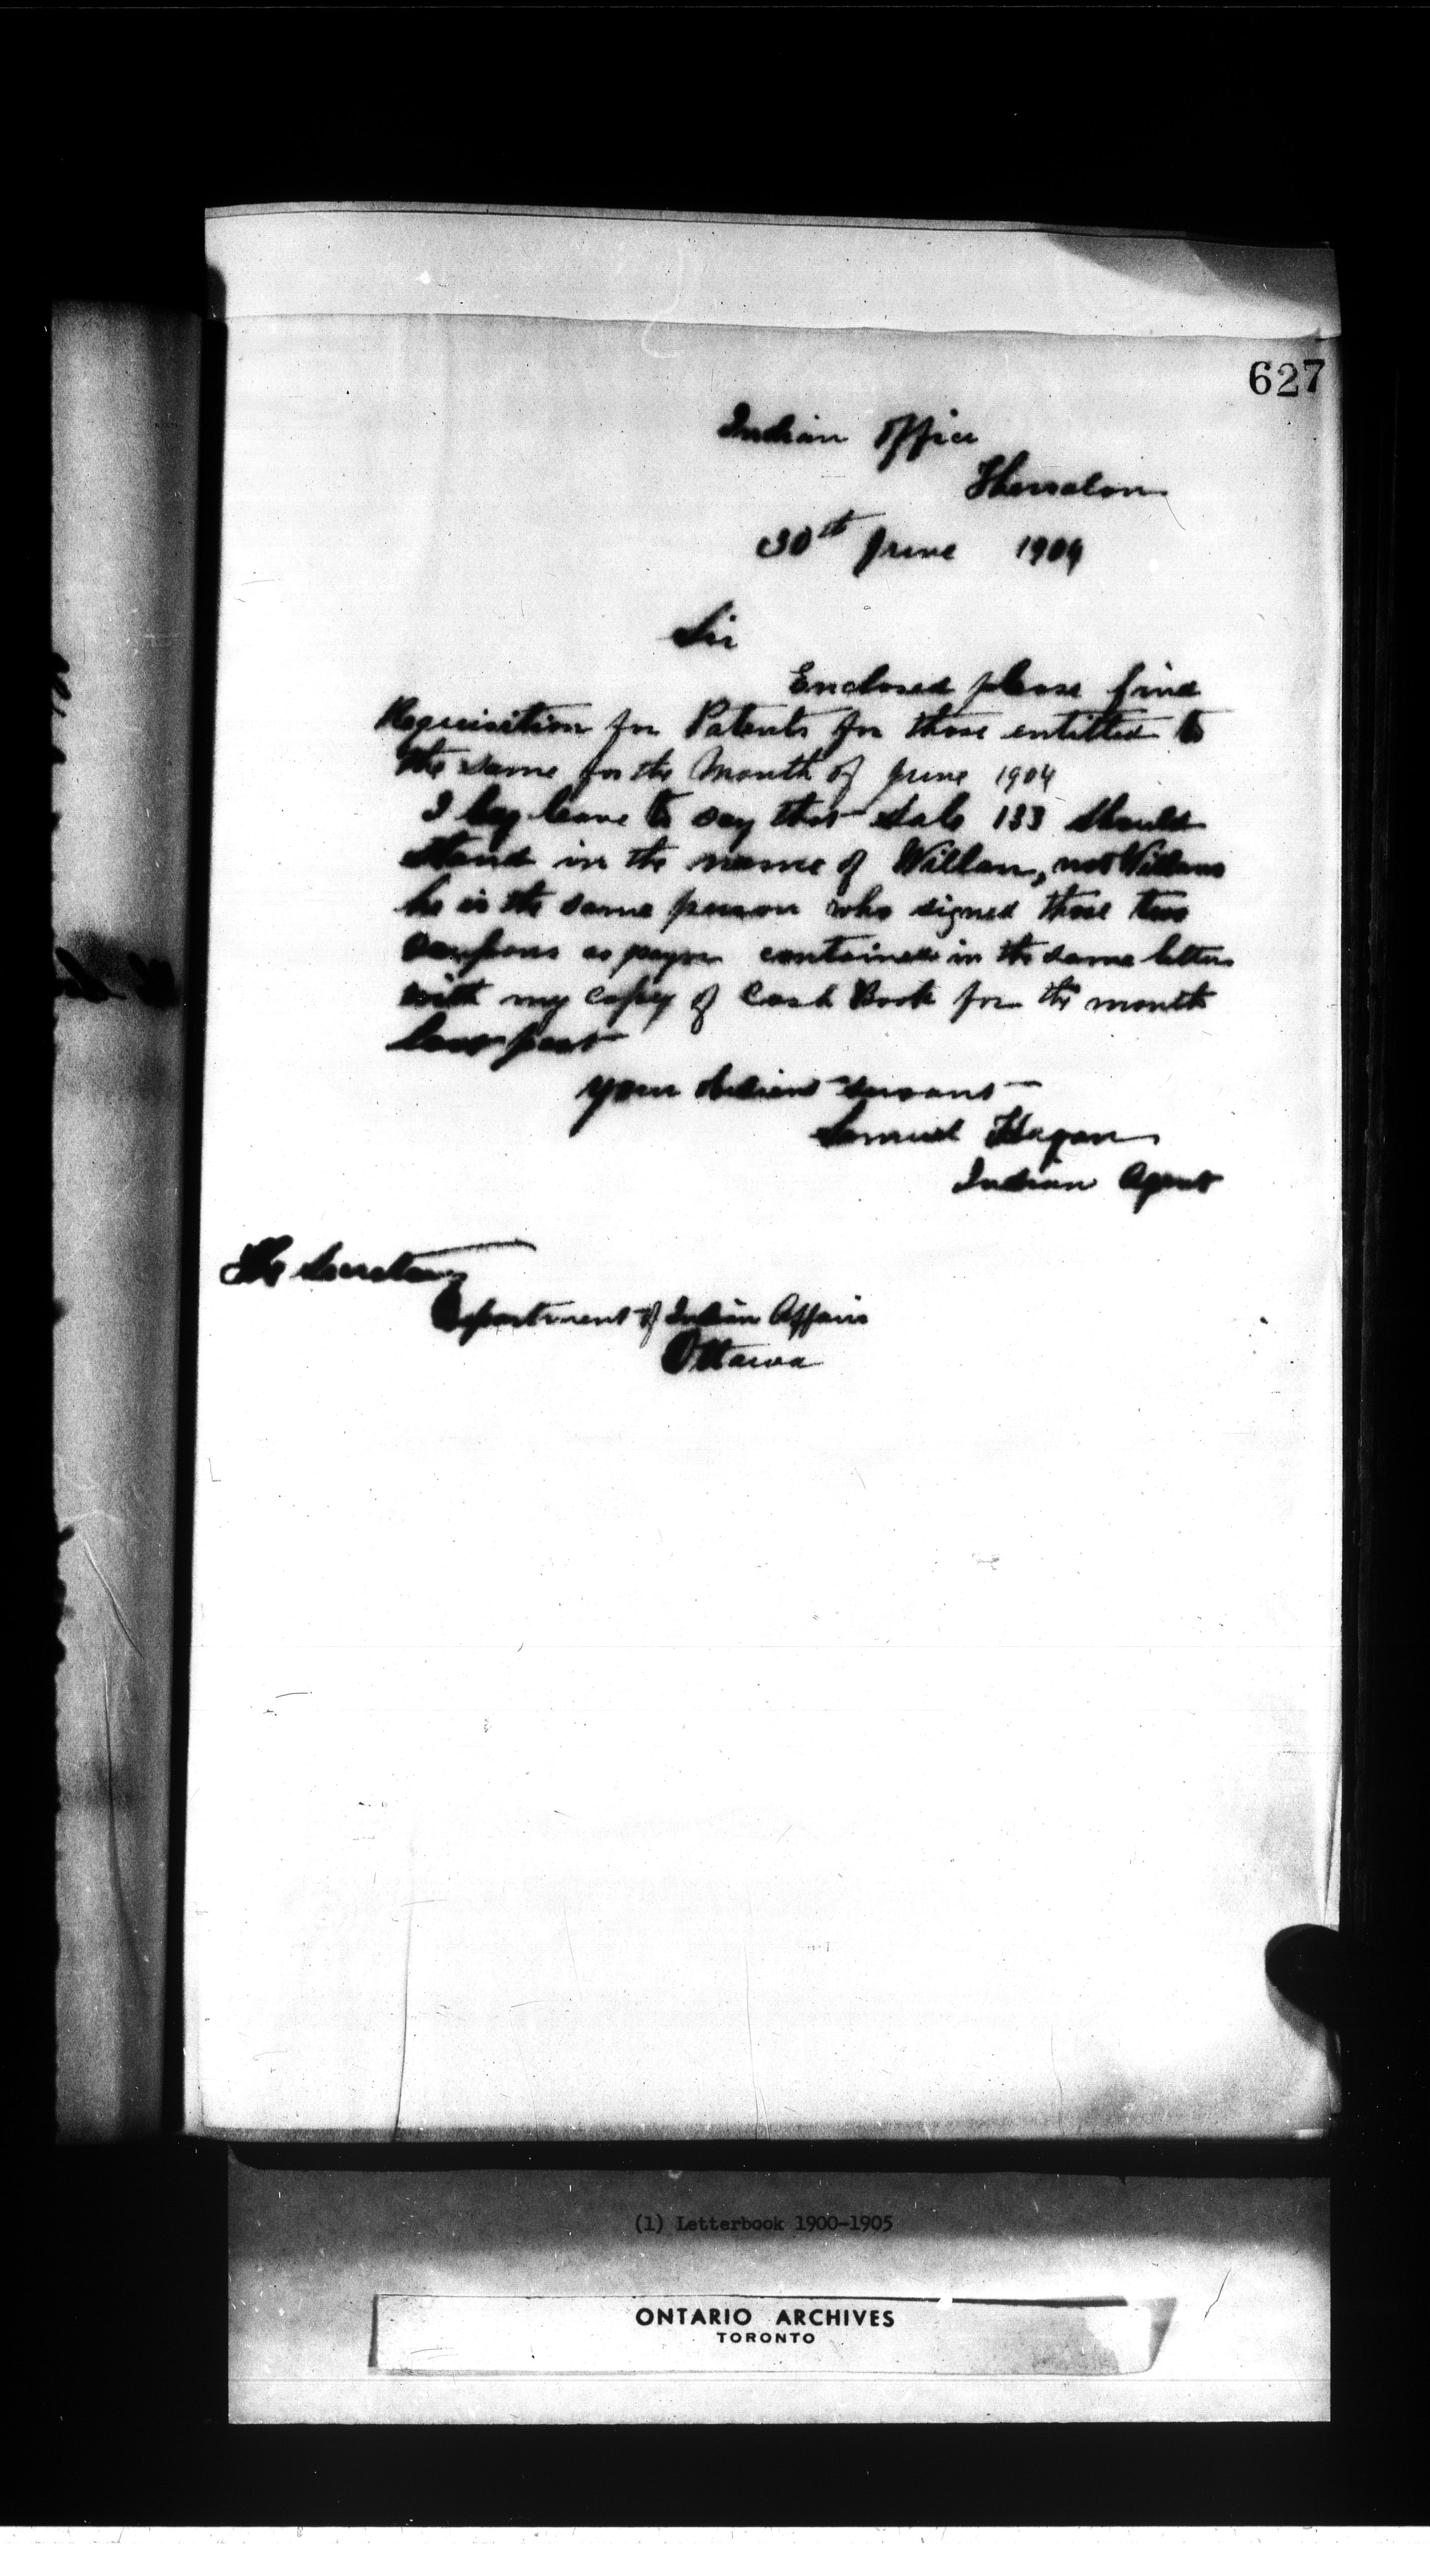 627
Indian Office
Thessalon
30th June 1904
Sir
Enclosed please find
Requisition for Patents for those entitled to
the same for the Month of June 1904
I beg leave to say that Sale 133 should
stand in the name of Willan, not Willans
he is the same person who signed those two
coupons as payer contained in the same letter
with my copy of Cash Book for the month
last past
your obedient servant
Samuel Hagan
Indian Agent
The Secretary
Department of Indian Affairs
Ottawa
(1) Letterbook 1900-1905
ONTARIO ARCHIVES
TORONTO